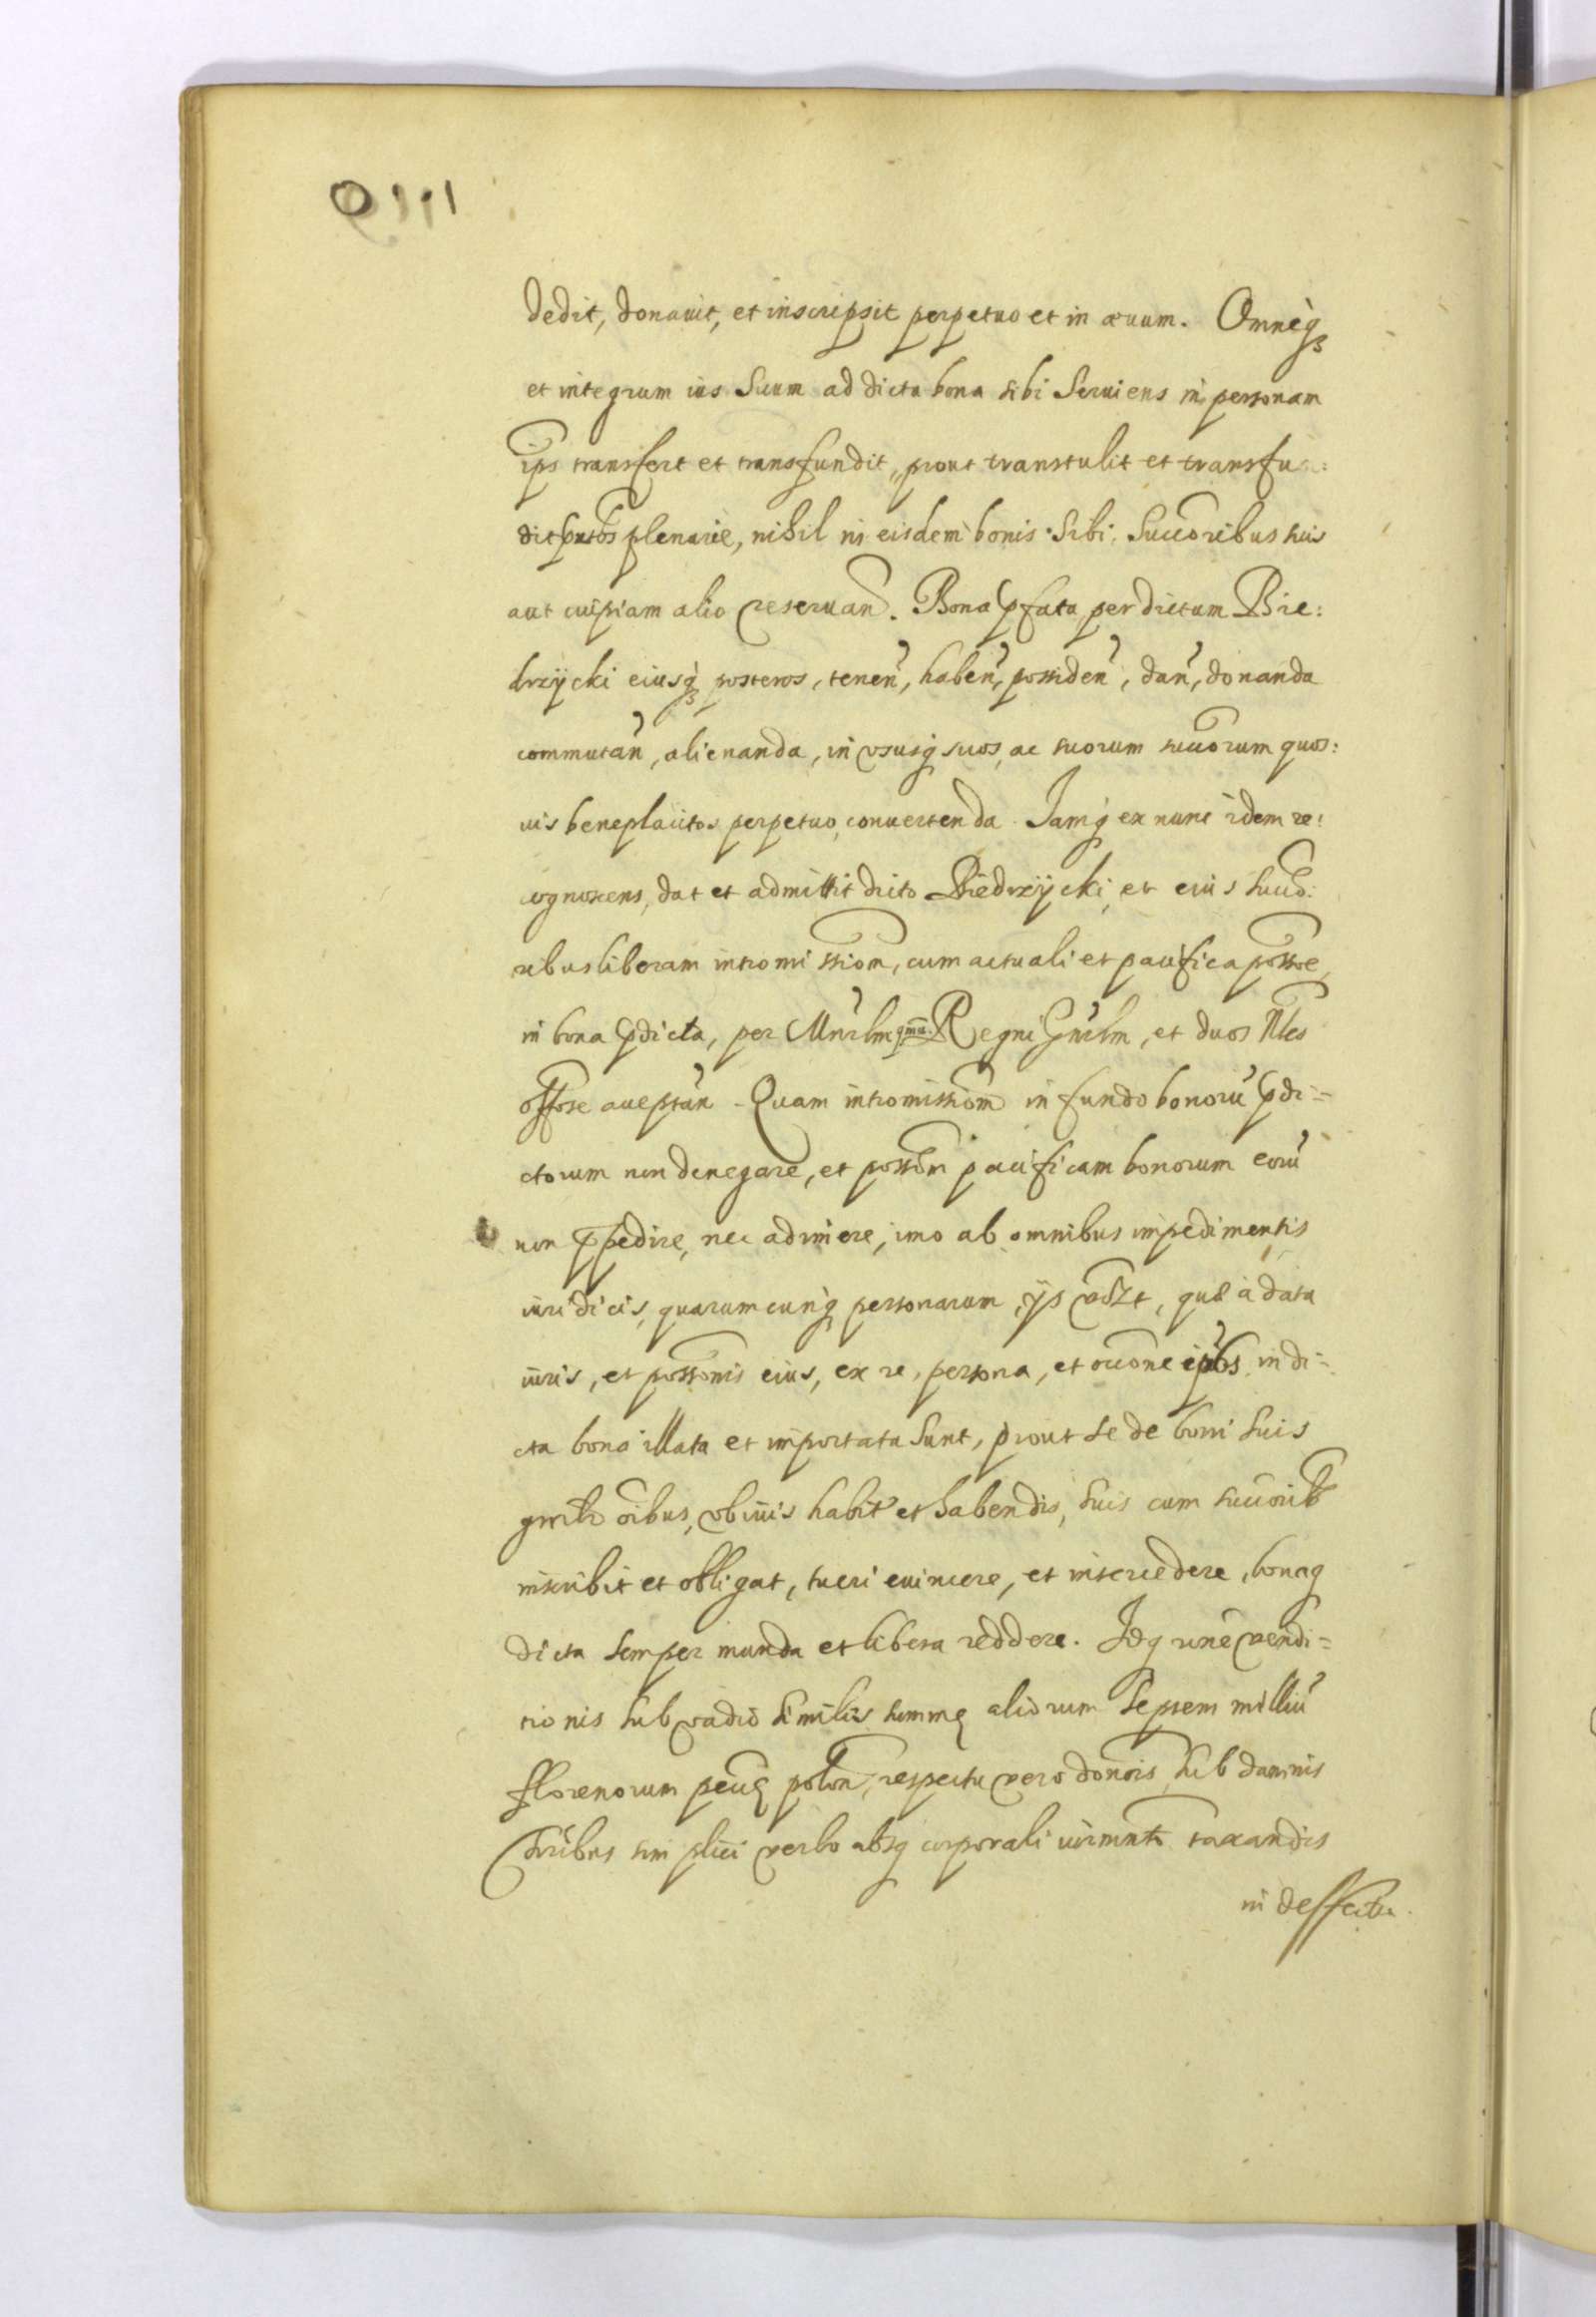 dedit, donauit, et inscripsit perpetuo et in æuum. Omneq3
et integrum ius Suum ad dicta bona sibi Seruiens in personam
ips transfert et transfundit, prout transtulit et transfu:
dit plenarie, nihil in eisdem bonis Sibi, Succoribus suis
aut cuipiam alio reseruan̄. Bona pfata per dictum Bie:
drzycki eiusq3 posteros, tenen̄, haben̄, possiden̄, dan̄, donanda
commutan̄, alienanda, in vsusq suos, ac suorum succorum quos:
uis beneplacitos perpetuo conuertenda. Jamq ex nunc idem re:
cognoscens, dat et admittit dicto Biedrzycki, et eius succo:
ribus liberam intromissiom, cum actuali et pacifica possoe,
in bona pdicta, per Mnrlm Regni Gnrlm, et duos Nbles
accptan̄. Quam intromissiom in fundo bonorū pdi=
ctorum non denegare, et possom pacificam bonorum eorū
non ppedire, nec adimere, imo ab omnibus impedimentis
iuridicis, quarumcunq personarum, ijs vdzt, quæ à data
iuris, et possonis eius, ex re, persona, et occone ipsos in di=
cta bona illata et importata sunt, prout se de boni suis
gnrlr oibus, vbiuis habit et habendis, suis cum succorib
inscribit et obligat, tueri euincere, et intercedere, bonaq
dicta semper munda et libera reddere. Jdq rōne vendi=
tionis sub vadio similis summę aliorum Septem milliū
florenorum pecę polon, respectu vero donōis, sub damnis
trribus simplici verbo absq corporali iurmnto taxandis
in deffectu.